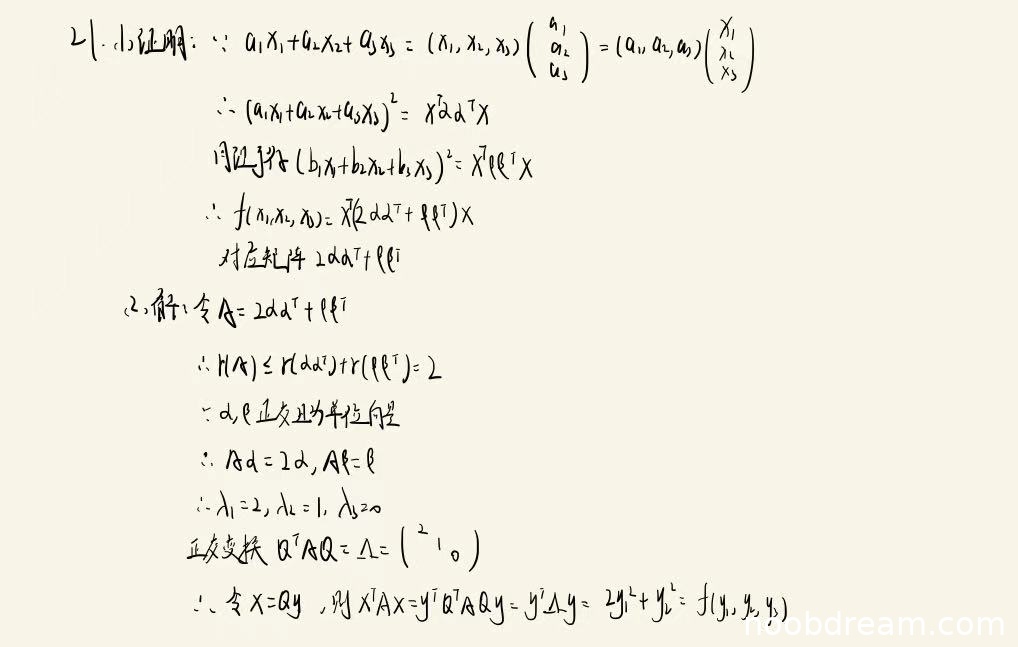 21. (1) 证明: ∵ a₁x₁+a₂x₂+a₃x₃ = (x₁, x₂, x₃)(a₁ a₂ a₃) = (a₁, a₂, a₃)(x₁ x₂ x₃)
∴ (a₁x₁+a₂x₂+a₃x₃)² = xᵀααᵀx
同理可得 (b₁x₁+b₂x₂+b₃x₃)² = xᵀββᵀx
∴ f(x₁,x₂,x₃) = xᵀ(2ααᵀ+ββᵀ)x
对应矩阵 2ααᵀ+ββᵀ
(2) 解: 令 A = 2ααᵀ+ββᵀ
∴ r(A) ≤ r(ααᵀ)+r(ββᵀ) = 2
∵ α,β 正交且为单位向量
∴ Aα = 2α, Aβ = β
∴ λ₁=2, λ₂=1, λ₃=0
正交变换 QᵀAQ = Λ = (2 1 0)
∴ 令 x=Qy, 则 xᵀAx = yᵀQᵀAQy = yᵀΛy = 2y₁²+y₂² = f(y₁, y₂, y₃)
noobdream.com